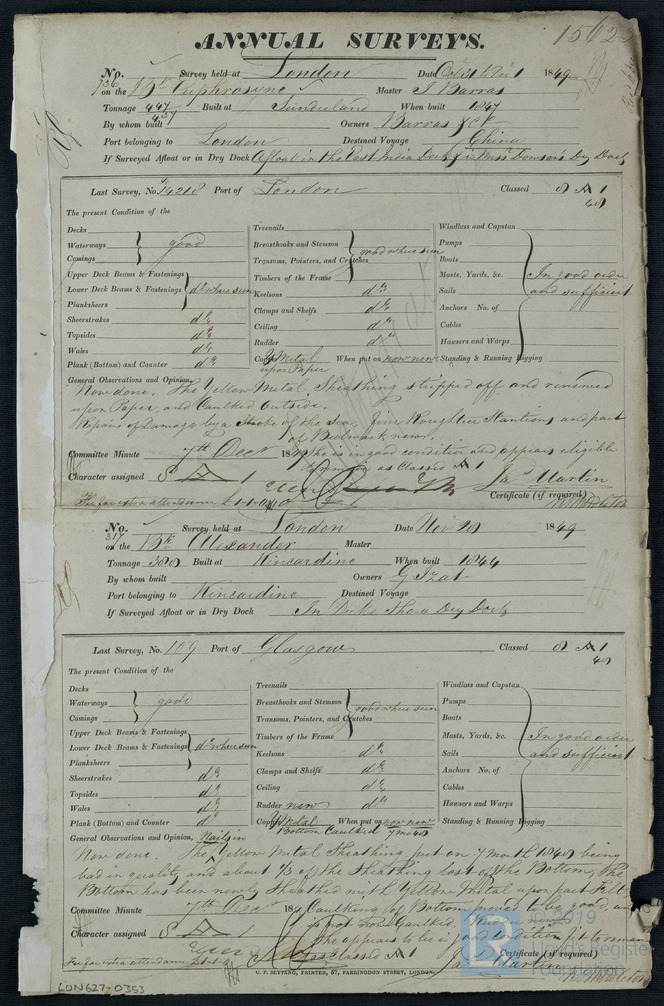 ANNUAL SURVEYS.
No. 736 Survey held at London Date 1849
on the Bk Euphrosyne Master J Barras
Tonnage 447 457 Built at Sunderland When built 1847
By whom built Owners Barras & Co
Port belonging to London Destined Voyage China
If Surveyed Afloat or in Dry Dock Afloat in the East India Dock & in Miss Dowson's Dry Dock
Last Survey, No. 14218 Port of London Classed A 1
The present Condition of the
Decks
Waterways good
Comings
Upper Deck Beams & Fastenings
Lower Deck Beams & Fastenings do where seen
Planksheers
Sheerstrakes do
Topsides do
Wales do
Plank (Bottom) and Counter do
Treenails
Breasthooks and Stemson good where seen
Transoms, Pointers, and Crutches
Timbers of the Frame
Keelsons do
Clamps and Shelfs do
Ceiling do
Rudder do
Copper Y Metal upon Paper When put on now new
Windlass and Capstan
Pumps
Boats
Masts, Yards, &c. In good order
Sails and sufficient
Anchors No. of
Cables
Hawsers and Warps
Standing & Running Rigging
General Observations and Opinion,
Now done. The Yellow Metal Sheathing stripped off and renewed
upon Paper, and Caulked Outside.
Repairs of Damage by a Stroke of the Sea, five Roughtree Stantions and part
of Bulwark new.
She is in good condition and appears eligible
to remain as Classed A 1
Committee Minute 7th Decr 184
Character assigned A 1
Jas Martin
Certificate (if required)
Fee for extra attendance £1-1-0
No. 317 Survey held at London Date Nov 20 1849
on the Bk Alexander Master
Tonnage 300 Built at Kincardine When built 1844
By whom built Owners G Izat
Port belonging to Kincardine Destined Voyage
If Surveyed Afloat or in Dry Dock In Duke Shore Dry Dock
Last Survey, No. 109 Port of Glasgow Classed A 1
The present Condition of the
Decks
Waterways good
Comings
Upper Deck Beams & Fastenings
Lower Deck Beams & Fastenings do where seen
Planksheers
Sheerstrakes do
Topsides do
Wales do
Plank (Bottom) and Counter do
Treenails
Breasthooks and Stemson good where seen
Transoms, Pointers, and Crutches
Timbers of the Frame
Keelsons do
Clamps and Shelfs do
Ceiling do
Rudder new do
Copper Y Metal When put on now new
Bottom Caulked 7 mo
Windlass and Capstan
Pumps
Boats
Masts, Yards, &c. In good order
Sails and sufficient
Anchors No. of
Cables
Hawsers and Warps
Standing & Running Rigging
General Observations and Opinion, Nails in
Now done. The Yellow Metal Sheathing put on 7 month being
bad in quality and about 1/3 of the Sheathing lost off the Bottom, The
Bottom has been newly Sheathed with Yellow Metal upon part Felt
Caulking of Bottom proved to be good, and
is not now Caulked.
She appears to be in good condition fit to remain
as classed A 1
Committee Minute 7th Decr 184
Character assigned
Jas Martin
Certificate (if required)
Fee for extra attendance £1-1-0
C. F. SEYFANG, PRINTER, 57, FARRINGDON STREET, LONDON.
LON627-0353
© 2019
Lloyd's Register
Foundation